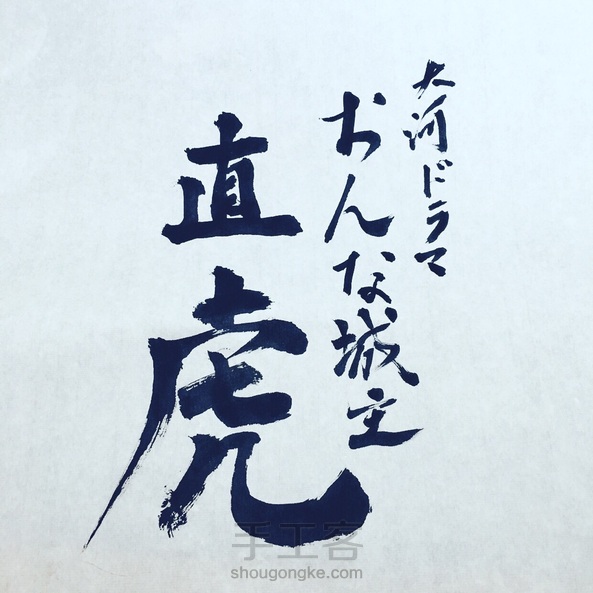 大河ドラマ
おんな城主
直虎
手工客
shougongke.com